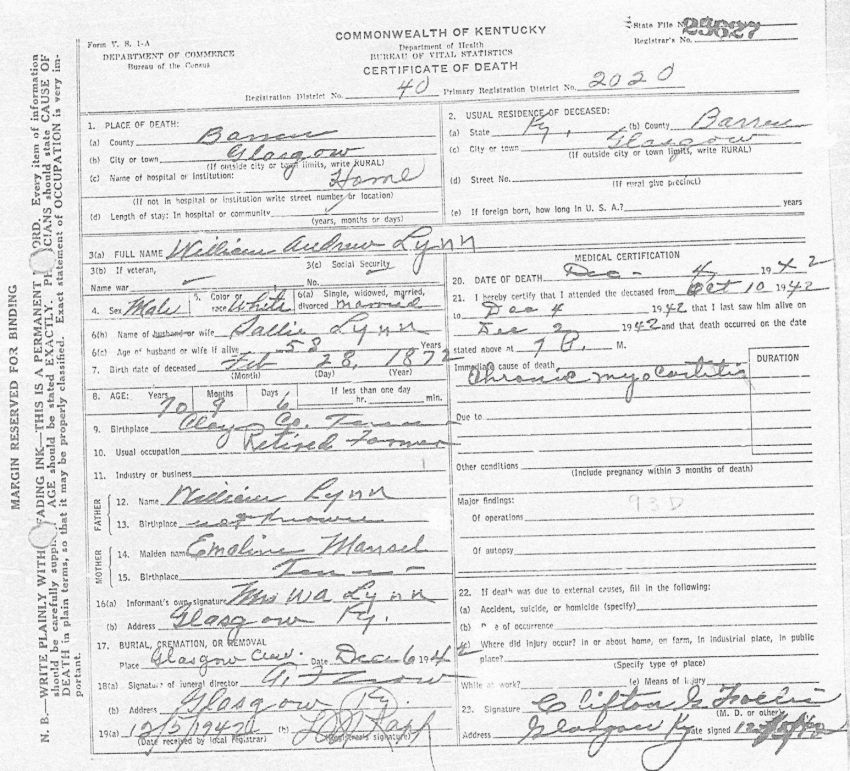 COMMONWEALTH OF KENTUCKY
Form V. S. 1-A
Department of Health
State File
DEPARTMENT OF COMMERCE
BUREAU OF VITAL STATISTICS
Registrar's No.
Bureau of the Census
CERTIFICATE OF DEATH
Registration District No. 40 Primary Registration District No. 2020
MARGIN RESERVED FOR BINDING
N. B.—WRITE PLAINLY WITH FADING INK—THIS IS A PERMANENT ORD. Every item of information
should be carefully suppli AGE should be stated EXACTLY. PH CIANS should state CAUSE OF
DEATH in plain terms, so that it may be properly classified. Exact statement of OCCUPATION is very im-
portant.
1. PLACE OF DEATH:
(a) County Barren
(b) City or town Glasgow
(If outside city or town limits, write RURAL)
(c) Name of hospital or institution: Home
(If not in hospital or institution write street number or location)
(d) Length of stay: In hospital or community
(years, months or days)
2. USUAL RESIDENCE OF DECEASED:
(a) State Ky. (b) County Barren
(c) City or town Glasgow
(If outside city or town limits, write RURAL)
(d) Street No.
(If rural give precinct)
(e) If foreign born, how long in U. S. A.? years
3(a) FULL NAME William Andrew Lynn
3(b) If veteran,
Name war
3(c) Social Security
No.
4. Sex Male 5. Color or race White 6(a) Single, widowed, married, divorced Married
6(b) Name of husband or wife Sallie Lynn
6(c) Age of husband or wife if alive 58 Years
7. Birth date of deceased Feb 28, 1872
(Month) (Day) (Year)
8. AGE: Years Months Days If less than one day
70 9 6 hr. min.
9. Birthplace Clay Co. Tenn
10. Usual occupation Retired Farmer
11. Industry or business
FATHER
12. Name William Lynn
13. Birthplace not known
MOTHER
14. Maiden name Emoline Mansel
15. Birthplace Tenn
16(a) Informant's own signature Mrs W A Lynn
(b) Address Glasgow Ky.
17. BURIAL, CREMATION, OR REMOVAL
Place Glasgow Date Dec 6 1942
18(a) Signature of funeral director
(b) Address Glasgow Ky.
19(a) 12/5/1942 (b)
(Date received by local registrar) (Registrar's signature)
MEDICAL CERTIFICATION
20. DATE OF DEATH Dec - 4 1942
21. I hereby certify that I attended the deceased from Oct 10 1942
to Dec 4 1942 that I last saw him alive on
Dec 2 1942 and that death occurred on the date
stated above at 7 P. M.
Immediate cause of death DURATION
Chronic myocarditis
Due to
Other conditions
(Include pregnancy within 3 months of death)
Major findings: 93D
Of operations
Of autopsy
22. If death was due to external causes, fill in the following:
(a) Accident, suicide, or homicide (specify)
(b) e of occurrence
(c) Where did injury occur? in or about home, on farm, in industrial place, in public
place?
(Specify type of place)
While at work? (e) Means of injury
23. Signature Clifton G
(M. D. or other)
Address Glasgow Ky Date signed